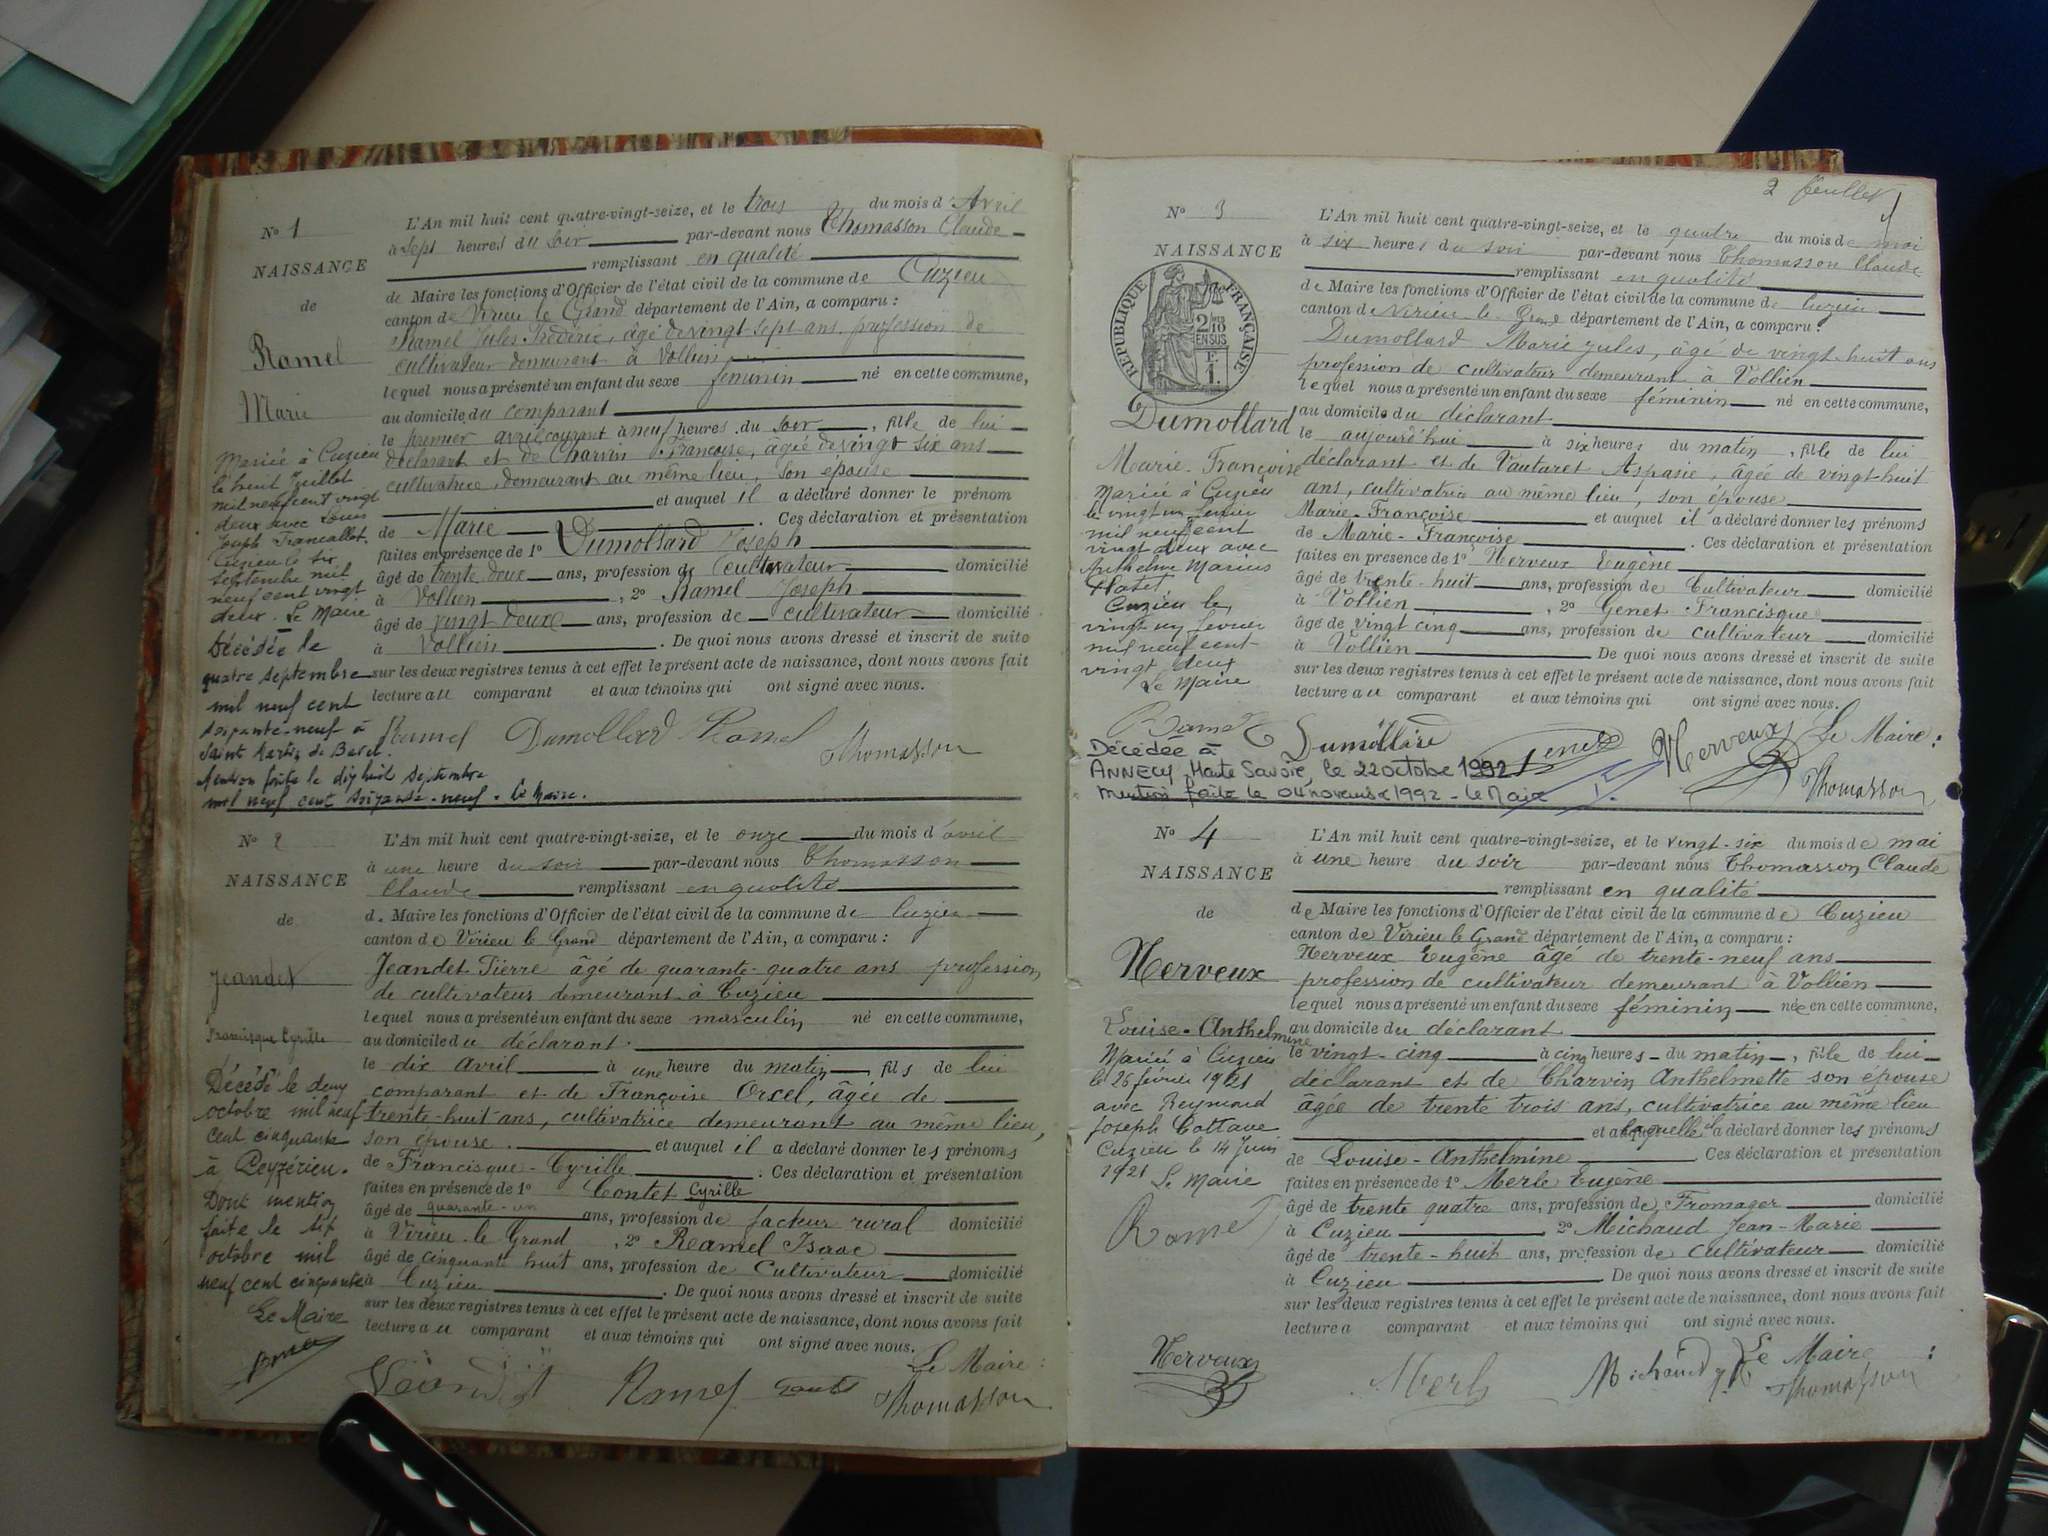 No 1
NAISSANCE
de
Ramel
Marie
Mariée à Cuzieu
le huit Juillet
mil neuf cent vingt
deux avec Louis
Joseph Francallet.
Cuzieu le six
septembre mil
neuf cent vingt
deux. Le Maire
Décédée le
quatre septembre
mil neuf cent
soixante-neuf à
Saint Martin de Bavel.
Mention faite le dix huit septembre
mil neuf cent soixante-neuf. Le Maire.
L'An mil huit cent quatre-vingt-seize, et le trois du mois d'Avril
à sept heures du soir par-devant nous Thomasson Claude
remplissant en qualité
de Maire les fonctions d'Officier de l'état civil de la commune de Cuzieu
canton de Virieu le Grand département de l'Ain, a comparu :
Ramel Jules Frédéric, âgé de vingt-sept ans, profession de
cultivateur demeurant à Vollien
lequel nous a présenté un enfant du sexe féminin né en cette commune,
au domicile du comparant
le premier avril courant à neuf heures du soir, fille de lui
déclarant et de Charvin Françoise, âgée de vingt six ans
cultivatrice, demeurant au même lieu, son épouse
et auquel il a déclaré donner le prénom
de Marie . Ces déclaration et présentation
faites en présence de 1º Dumollard Joseph
âgé de trente deux ans, profession de Cultivateur domicilié
à Vollien , 2º Ramel Joseph
âgé de vingt deux ans, profession de cultivateur domicilié
à Vollien . De quoi nous avons dressé et inscrit de suite
sur les deux registres tenus à cet effet le présent acte de naissance, dont nous avons fait
lecture au comparant et aux témoins qui ont signé avec nous.
Ramel Dumollard Ramel Thomasson
No 2
NAISSANCE
de
Jeandet
Francisque Cyrille
Décédé le deux
octobre mil neuf
cent cinquante
à Peyzérieu.
Dont mention
faite le six
octobre mil
neuf cent cinquante
Le Maire
L'An mil huit cent quatre-vingt-seize, et le onze du mois d'avril
à une heure du soir par-devant nous Thomasson
Claude remplissant en qualité
de Maire les fonctions d'Officier de l'état civil de la commune de Cuzieu
canton de Virieu le Grand département de l'Ain, a comparu :
Jeandet Pierre âgé de quarante-quatre ans profession
de cultivateur demeurant à Cuzieu
lequel nous a présenté un enfant du sexe masculin né en cette commune,
au domicile du déclarant
le dix avril à une heure du matin, fils de lui
comparant et de Françoise Orcel, âgée de
trente-huit ans, cultivatrice demeurant au même lieu,
son épouse. et auquel il a déclaré donner les prénoms
de Francisque-Cyrille . Ces déclaration et présentation
faites en présence de 1º Contet Cyrille
âgé de quarante-un ans, profession de facteur rural domicilié
à Virieu-le Grand , 2º Reamel Isaac
âgé de cinquante huit ans, profession de Cultivateur domicilié
à Cuzieu . De quoi nous avons dressé et inscrit de suite
sur les deux registres tenus à cet effet le présent acte de naissance, dont nous avons fait
lecture au comparant et aux témoins qui ont signé avec nous.
Le Maire :
Jeandet Ramel Contet Thomasson
2 feuillet
No 3
NAISSANCE
de
RÉPUBLIQUE FRANÇAISE
2/10
EN SUS
1F
Dumollard
Marie-Françoise
Mariée à Cuzieu
le vingt un février
mil neuf cent
vingt deux avec
Anthelme Marius
Cuzieu le
vingt un février
mil neuf cent
vingt deux
Le Maire
Ramel
Décédée à
ANNECY, Haute Savoie, le 22 octobre 1992
mention faite le 04 novembre 1992 - le Maire
L'An mil huit cent quatre-vingt-seize, et le quatre du mois de mai
à six heures du soir par-devant nous Thomasson Claude
remplissant en qualité
de Maire les fonctions d'Officier de l'état civil de la commune de Cuzieu
canton de Virieu-le Grand département de l'Ain, a comparu :
Dumollard Marie Jules, âgé de vingt-huit ans
profession de cultivateur demeurant à Vollien
lequel nous a présenté un enfant du sexe féminin né en cette commune,
au domicile du déclarant
le aujourd'hui à six heures du matin, fille de lui
déclarant et de Vautaret Aspasie, âgée de vingt-huit
ans, cultivatrice au même lieu, son épouse
Marie-Françoise et auquel il a déclaré donner les prénoms
de Marie-Françoise . Ces déclaration et présentation
faites en présence de 1º Nerveux Eugène
âgé de trente-huit ans, profession de Cultivateur domicilié
à Vollien , 2º Genet Francisque
âgé de vingt cinq ans, profession de cultivateur domicilié
à Vollien De quoi nous avons dressé et inscrit de suite
sur les deux registres tenus à cet effet le présent acte de naissance, dont nous avons fait
lecture au comparant et aux témoins qui ont signé avec nous.
Dumollard Genet Nerveux Le Maire :
Thomasson
No 4
NAISSANCE
de
Nerveux
Louise-Anthelmine
Mariée à Cuzieu
le 26 février 1921
avec Reymond
Joseph Cottave
Cuzieu le 14 Juin
1921 Le Maire
Ramel
L'An mil huit cent quatre-vingt-seize, et le vingt-six du mois de mai
à une heure du soir par-devant nous Thomasson Claude
remplissant en qualité
de Maire les fonctions d'Officier de l'état civil de la commune de Cuzieu
canton de Virieu le Grand département de l'Ain, a comparu :
Nerveux Eugène âgé de trente-neuf ans
profession de cultivateur demeurant à Vollien
lequel nous a présenté un enfant du sexe féminin née en cette commune,
au domicile du déclarant
le vingt-cinq à cinq heures du matin, fille de lui
déclarant et de Charvin Anthelmette son épouse
âgée de trente trois ans, cultivatrice au même lieu
et à laquelle il a déclaré donner les prénoms
de Louise-Anthelmine . Ces déclaration et présentation
faites en présence de 1º Merle Eugène
âgé de trente quatre ans, profession de Fromager domicilié
à Cuzieu 2º Michaud Jean-Marie
âgé de trente-huit ans, profession de Cultivateur domicilié
à Cuzieu . De quoi nous avons dressé et inscrit de suite
sur les deux registres tenus à cet effet le présent acte de naissance, dont nous avons fait
lecture a comparant et aux témoins qui ont signé avec nous.
Nerveux Merle Michaud Le Maire :
Thomasson